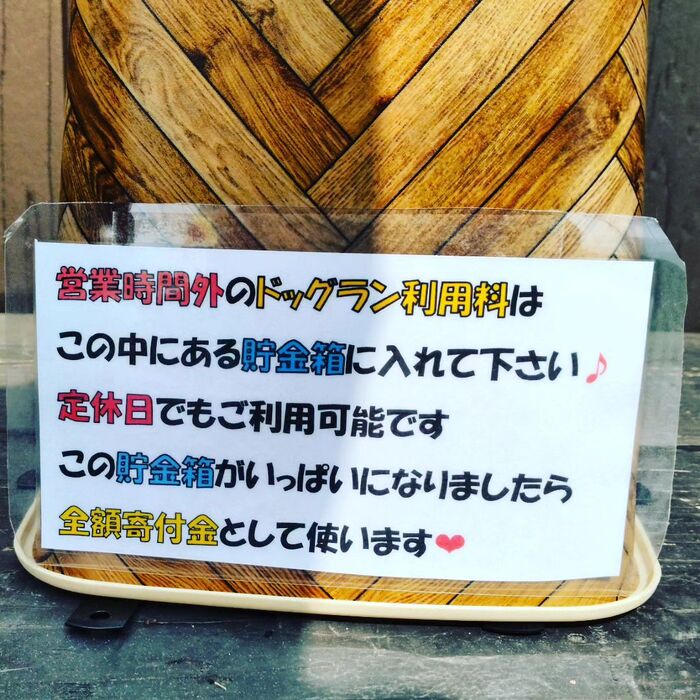 営業時間外のドッグラン利用料は
この中にある貯金箱に入れて下さい♪
定休日でもご利用可能です
この貯金箱がいっぱいになりましたら
全額寄付金として使います❤